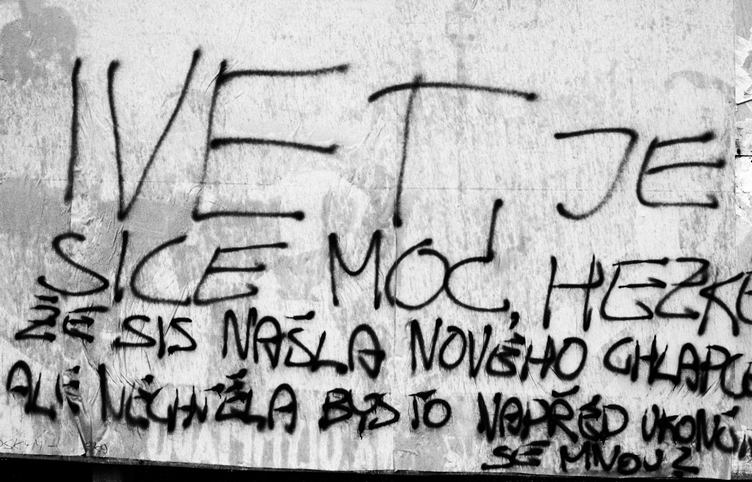 IVET JE
SICE MOC HEZKÉ
ŽE SIS NAŠLA NOVÉHO CHLAPCE
ALE NECHTĚLA BYS TO NAPŘED UKONČIT
SE MNOU?